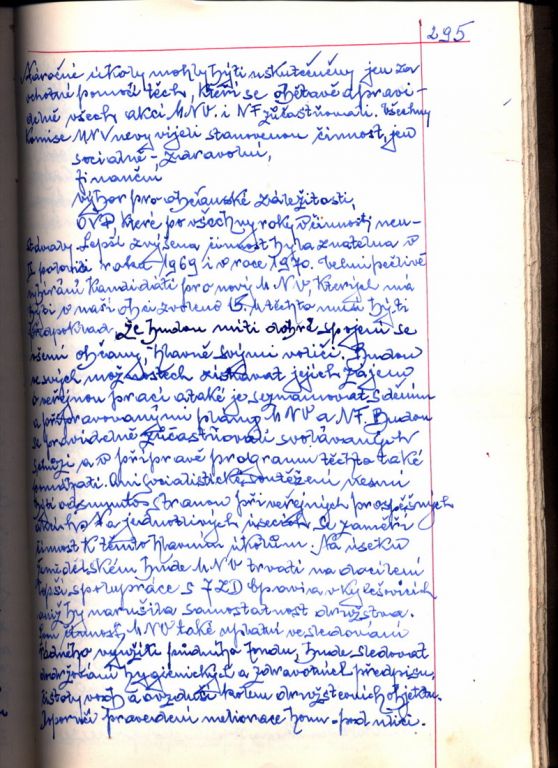 295
Náročné úkoly mohly býti uskutečněny jen za
ochotné pomoci těch, kteří se obětavě a pravi-
delně všech akcí MNV. i NF zúčastňovali. Všechny
Komise MNV nevyvíjeli stanovenou činnost, jen
sociálně-zdravotní,
finanční
výbor pro občanské záležitosti,
OVP, které po všechny roky v činnosti neu-
stávaly. Lepší zvýšená činnost byla znatelna v
II polovici roku 1969 i v roce 1970. Velmi pečlivě
vybíráni Kandidáti pro nový MNV. Kterých má
býti v naší obci zvoleno 15. U těchto musí býti
předpoklad. Že budou míti dobré spojení se
všemi občany, hlavně svými voliči. Budou
ve svých možnostech získávat jejich zájem
o veřejnou práci a také je seznamovat s děním
a připravovanými plány MNV a NF. Budou
se pravidelně zúčastňovati svolávaných
schůzí a v přípravě programu těchto také
pomáhati. Ani socialistické soutěžení nesmí
býti odsunuto stranou při veřejných prospěšných
a jednotlivých úsecích se zaměří
činnost K těmto hlavním úkolům. Na úseku
zemědělském bude MNV trvati na docílení
lepší spolupráce s JZD v Kylešovicích
aniž by narušila samostatnost družstva.
MNV také uplatní ve sledování
řádného využití půdního fondu, bude sledovat
dodržování hygienických a zdravotních předpisů,
čistoty vody a ovzduší kolem družstevních objektů.
provedení meliorace hon. pod ulicí.